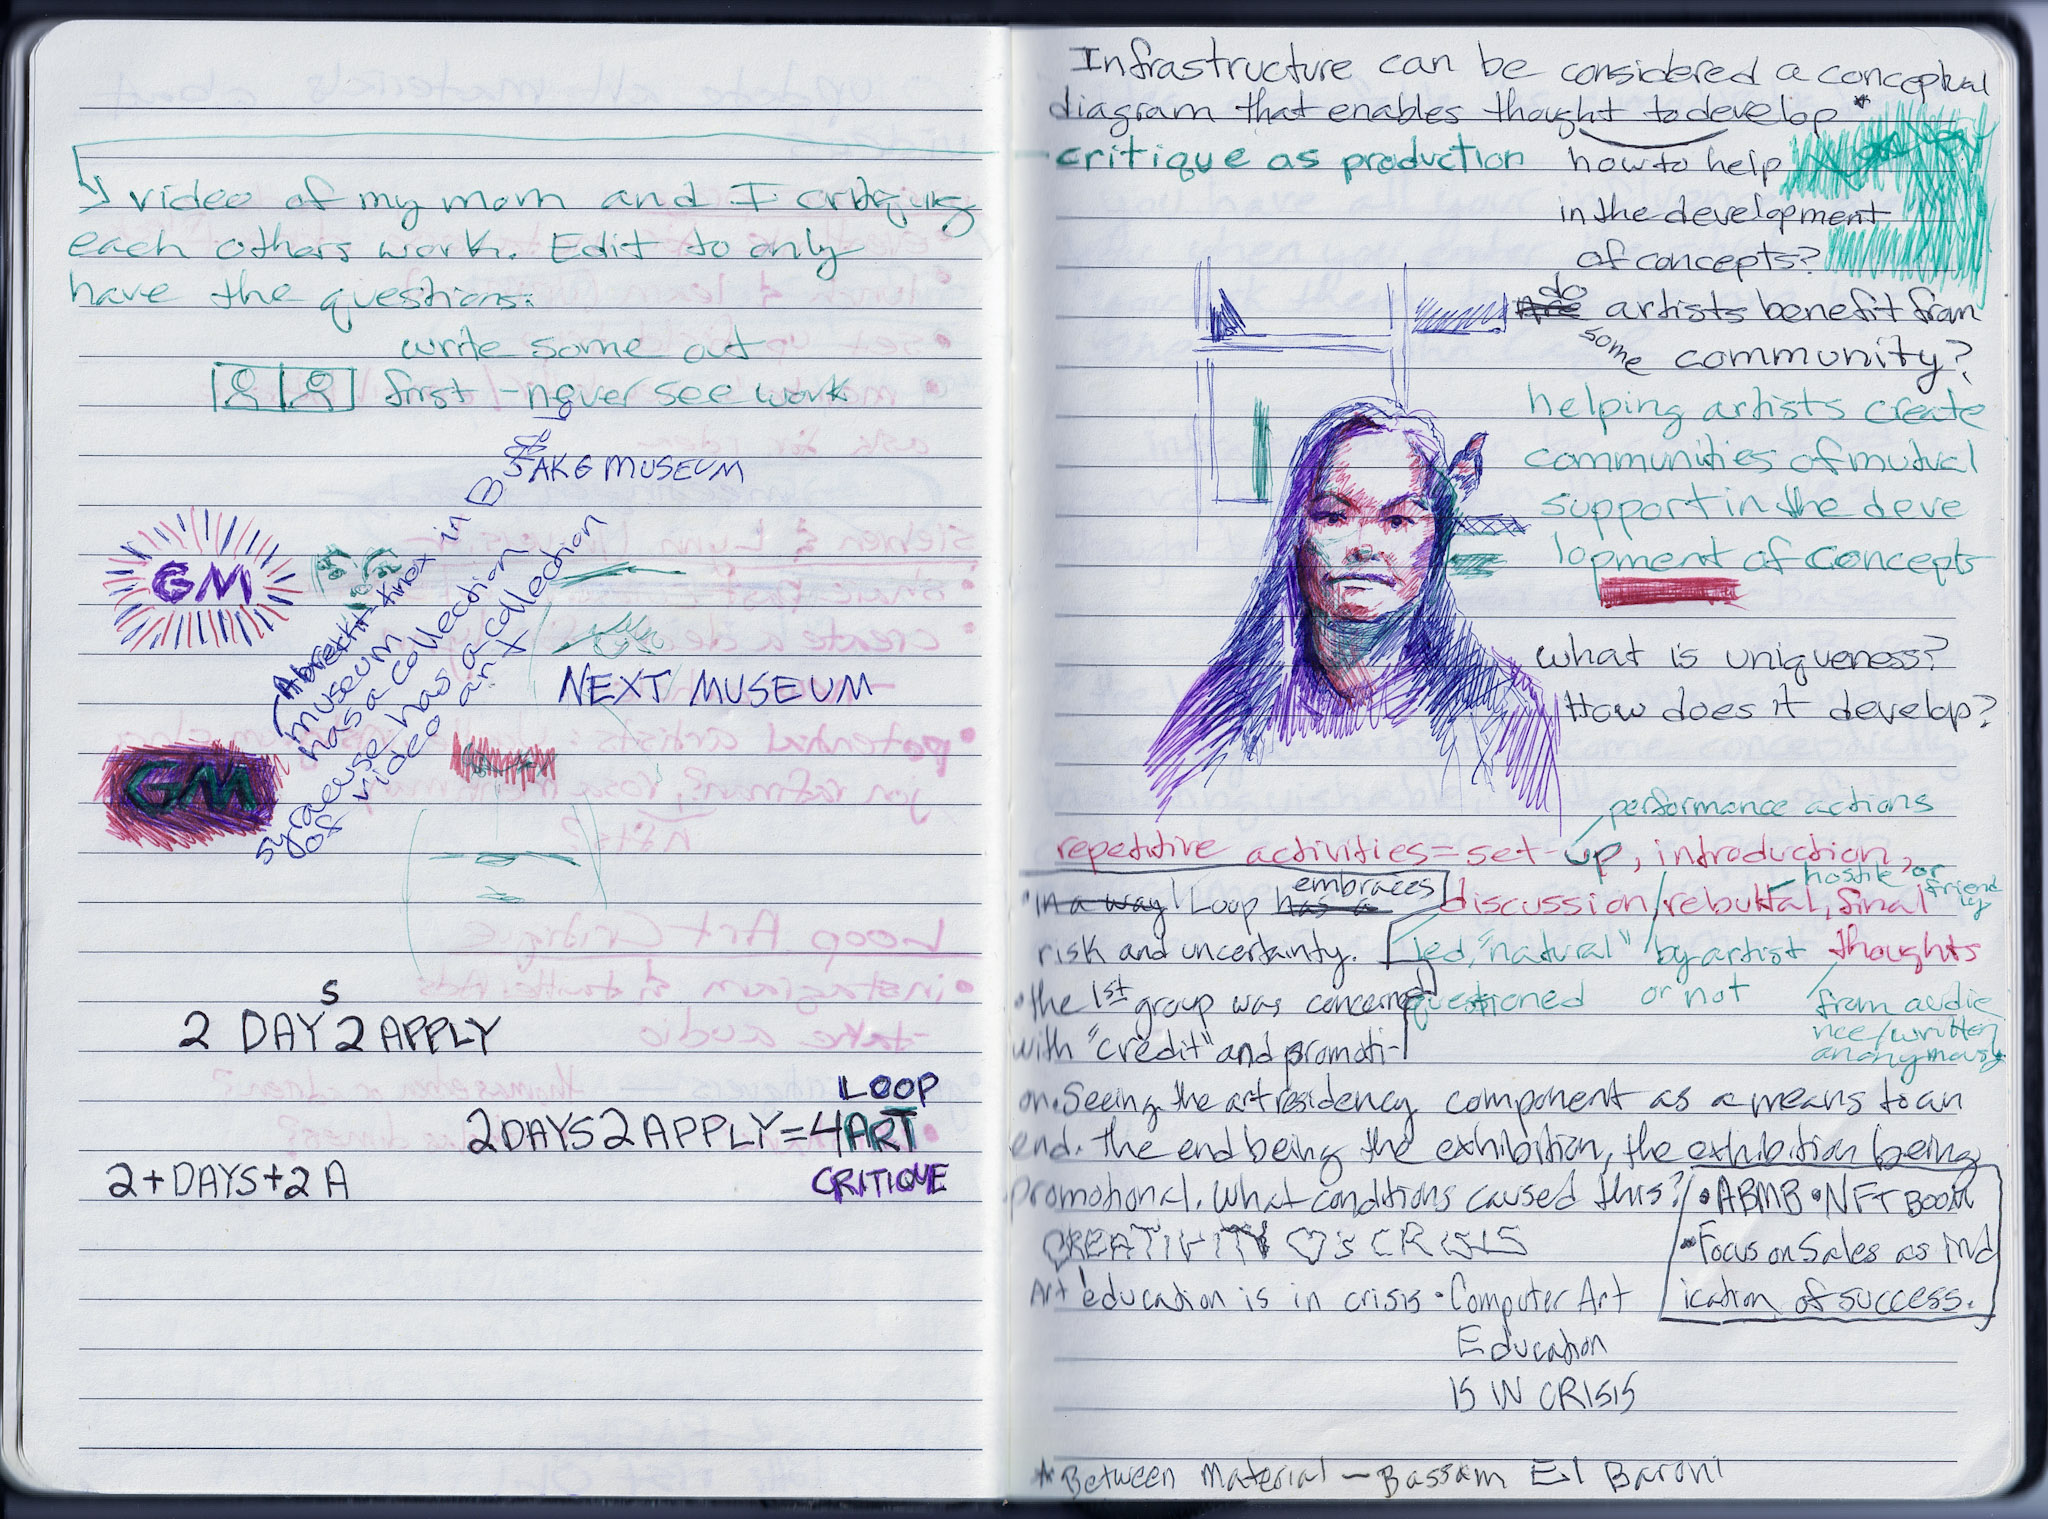 video of my mom and I critiquing
each others work. Edit to only
have the questions.
write some out
first - never see work
AKG MUSEUM
GM
museum
has a collection
Syracuse has a collection
of video art
NEXT MUSEUM
GM
2 DAYS 2 APPLY
LOOP
2DAYS2APPLY=4ART
CRITIQUE
2+DAYS+2A
Infrastructure can be considered a conceptual
diagram that enables thought to develop*
critique as production
how to help
in the development
of concepts?
do artists benefit from
some community?
helping artists create
communities of mutual
support in the deve
lopment of concepts
what is uniqueness?
How does it develop?
performance actions
repetitive activities=set-up, introduction,
hostile or friendly
discussion/rebuttal, final
thoughts
led, "natural" by artist
questioned or not
from audie
nce/written
anonymously
• In a way Loop has a embraces
risk and uncertainty.
• the 1st group was concerned
with "credit" and promoti-
on. Seeing the art residency component as a means to an
end. the end being the exhibition, the exhibition being
promotional. What conditions caused this?
• ABMB • NFT BOOM
• Focus on Sales as ind
ication of success.
CREATIVITY ♡s CRISIS
Art education is in crisis • Computer Art
Education
IS IN CRISIS
*Between Material - Bassam El Baroni